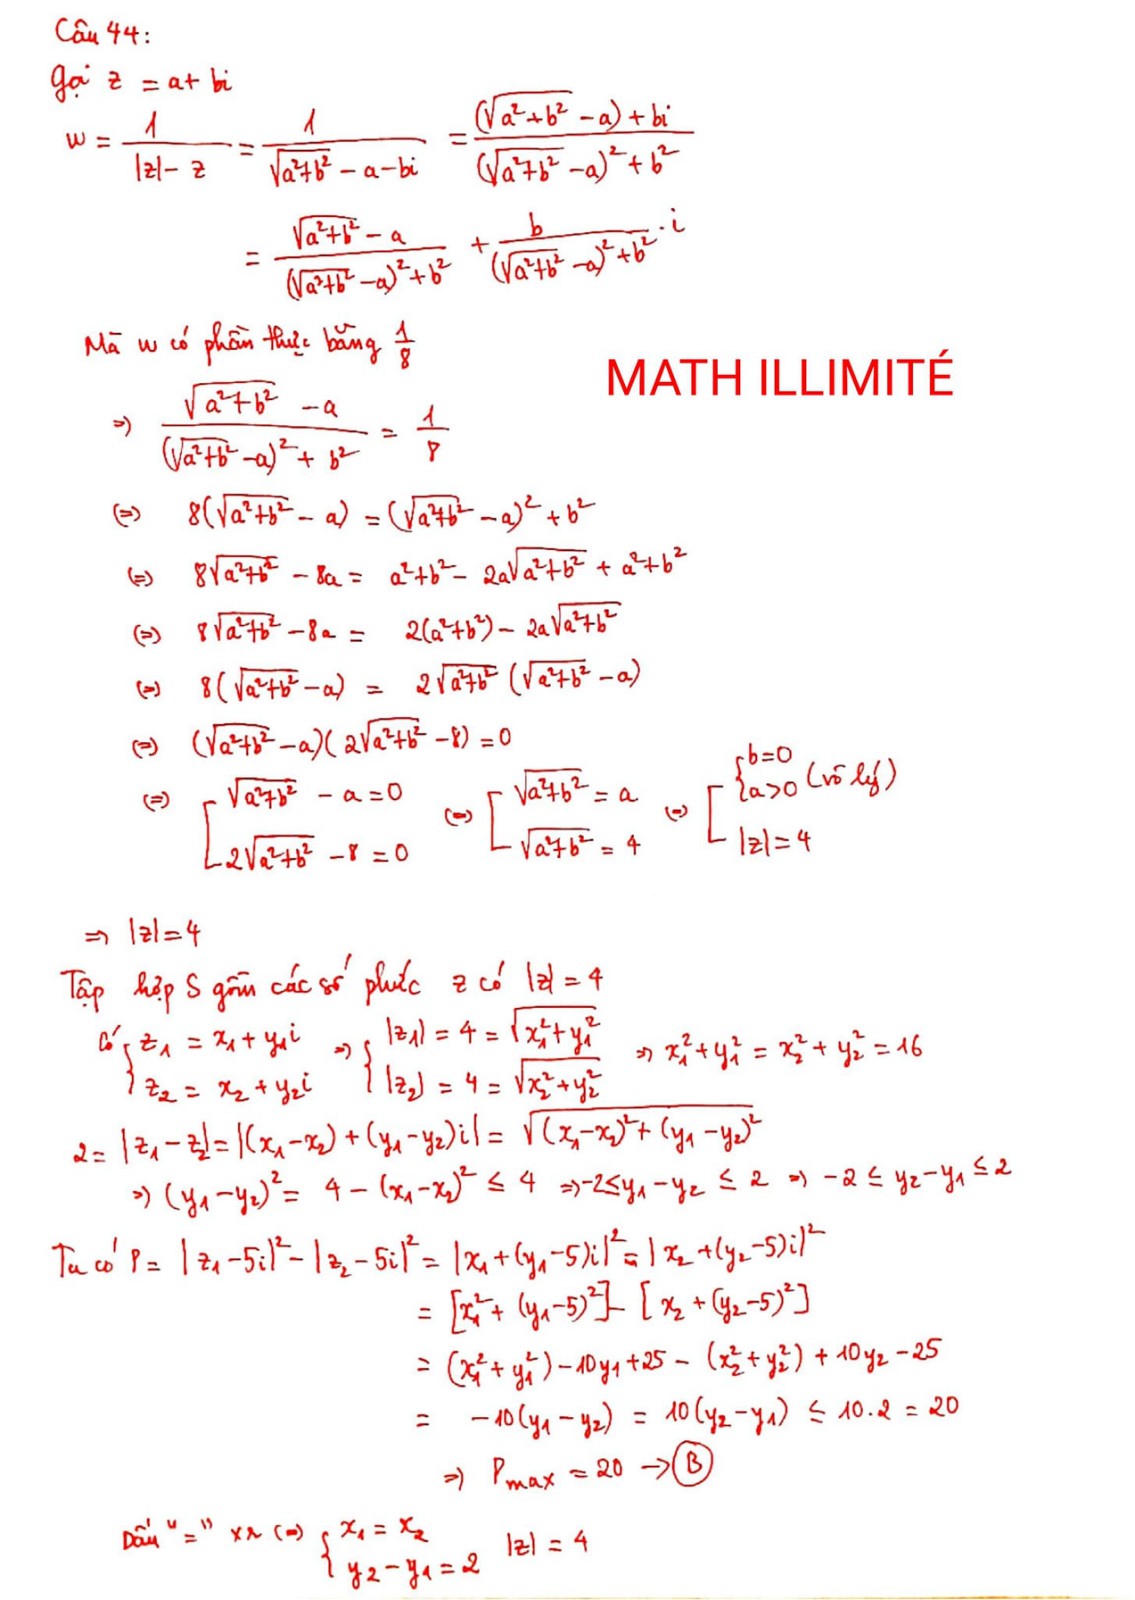 Câu 44:
Gọi z = a + bi
w = 1/(|z| - z) = 1/(√(a²+b²) - a - bi) = ((√(a²+b²) - a) + bi)/((√(a²+b²) - a)² + b²)
= (√(a²+b²) - a)/((√(a²+b²) - a)² + b²) + b/((√(a²+b²) - a)² + b²) · i
Mà w có phần thực bằng 1/8
MATH ILLIMITÉ
=> (√(a²+b²) - a)/((√(a²+b²) - a)² + b²) = 1/8
(=) 8(√(a²+b²) - a) = (√(a²+b²) - a)² + b²
(=) 8√(a²+b²) - 8a = a²+b² - 2a√(a²+b²) + a²+b²
(=) 8√(a²+b²) - 8a = 2(a²+b²) - 2a√(a²+b²)
(=) 8(√(a²+b²) - a) = 2√(a²+b²) (√(a²+b²) - a)
(=) (√(a²+b²) - a)(2√(a²+b²) - 8) = 0
(=) [ √(a²+b²) - a = 0 (=) [ √(a²+b²) = a (=) [ { b=0 a>0 (vô lý)
2√(a²+b²) - 8 = 0 √(a²+b²) = 4 |z| = 4
=> |z| = 4
Tập hợp S gồm các số phức z có |z| = 4
Có { z₁ = x₁ + y₁i => { |z₁| = 4 = √(x₁²+y₁²) => x₁² + y₁² = x₂² + y₂² = 16
z₂ = x₂ + y₂i |z₂| = 4 = √(x₂²+y₂²)
2 = |z₁ - z₂| = |(x₁-x₂) + (y₁-y₂)i| = √((x₁-x₂)² + (y₁-y₂)²)
=> (y₁-y₂)² = 4 - (x₁-x₂)² ≤ 4 => -2 ≤ y₁ - y₂ ≤ 2 => -2 ≤ y₂ - y₁ ≤ 2
Ta có P = |z₁ - 5i|² - |z₂ - 5i|² = |x₁ + (y₁-5)i|² = |x₂ + (y₂-5)i|²
= [x₁² + (y₁-5)²] - [x₂ + (y₂-5)²]
= (x₁² + y₁²) - 10y₁ + 25 - (x₂² + y₂²) + 10y₂ - 25
= -10(y₁ - y₂) = 10(y₂ - y₁) ≤ 10.2 = 20
=> Pmax = 20 → B
Dấu "=" xr (=) { x₁ = x₂ |z| = 4
y₂ - y₁ = 2